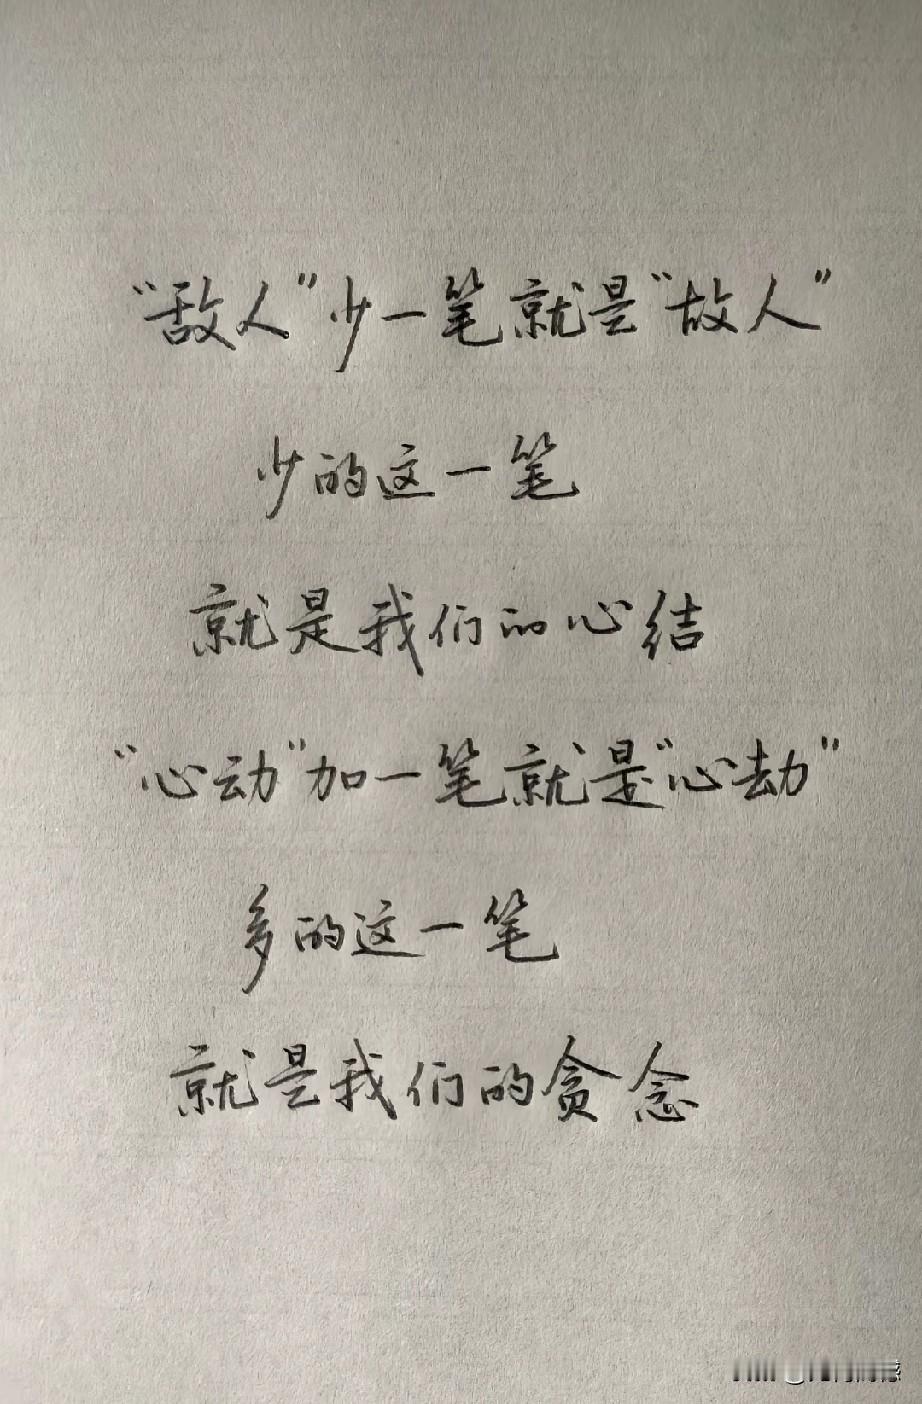 “敌人”少一笔就是“故人”
少的这一笔
就是我们的心结
“心动”加一笔就是“心劫”
多的这一笔
就是我们的贪念